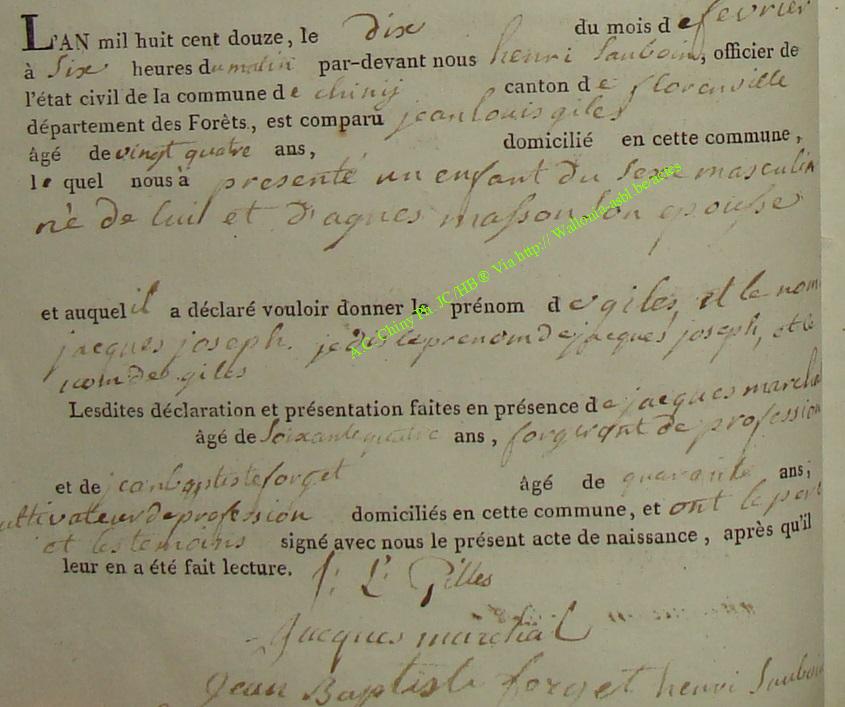 L'AN mil huit cent douze, le dix du mois de fevrier
à six heures du matin par-devant nous henri Sauboin, officier de
l'état civil de la commune de chinij canton de florenville
département des Forêts, est comparu jean louis giles
âgé de vingt quatre ans, domicilié en cette commune,
le quel nous à presenté un enfant du sexe masculin
né de luil et d'agnes masson son epouse
et auquel il a déclaré vouloir donner le prénom de giles, et le nom
jacques joseph. je dis le prenom de jacques joseph, et le
nom de giles
Lesdites déclaration et présentation faites en présence de jacques marchal
âgé de soixante quatre ans, forgeront de profession
et de jean baptiste forget âgé de quarante ans;
cultivateur de profession domiciliés en cette commune, et ont le pere
et les temoins signé avec nous le présent acte de naissance, après qu'il
leur en a été fait lecture. J: L: Gilles
Jacques marchal
Jean Baptiste forget henri Sauboin
A.C. Chiny Ph. JC/HB ® Via http:// Wallonia-asbl.be/actes